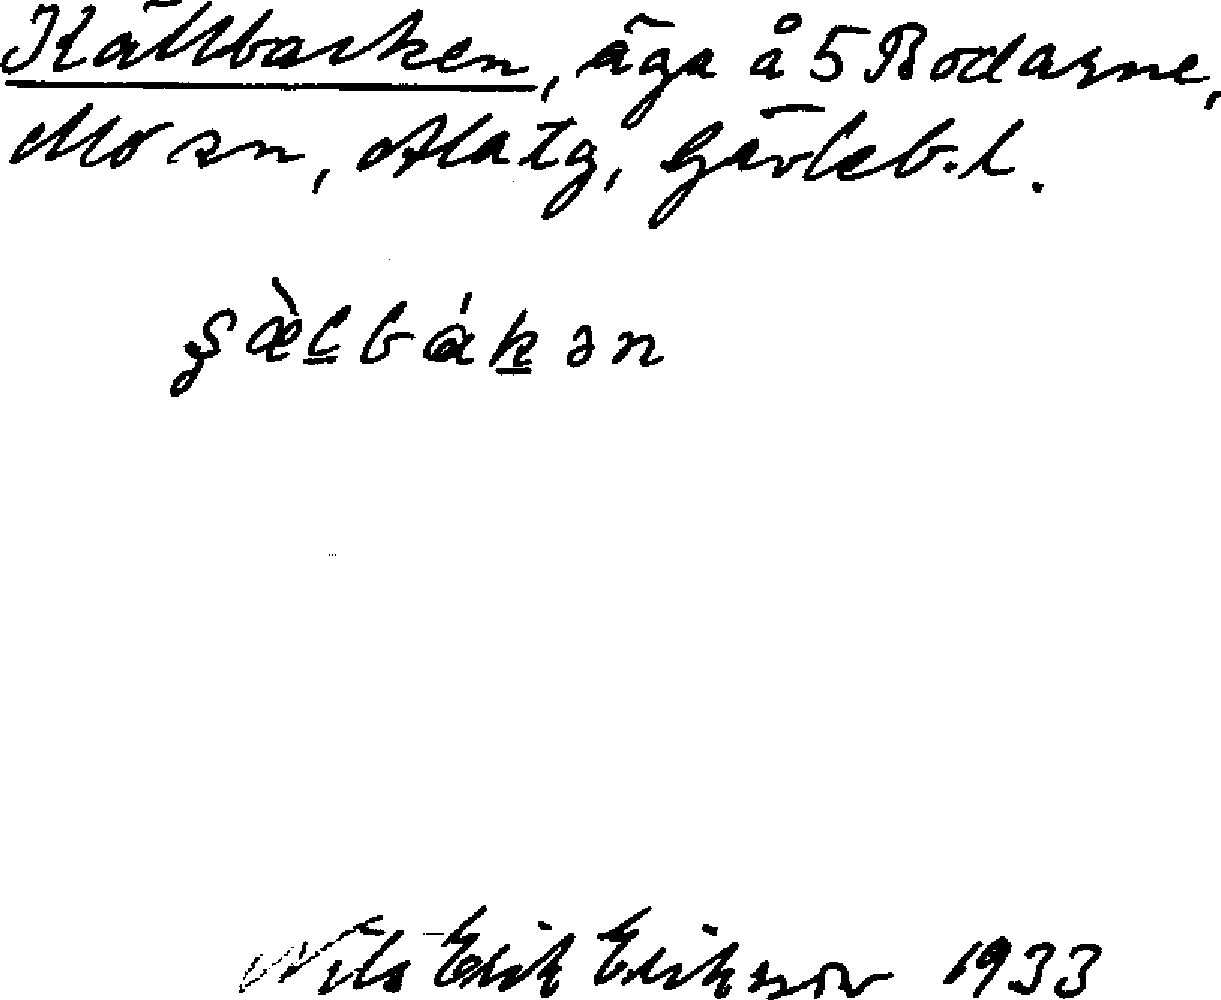 Källbacken, äga å 5 Bodarne,
Mo sn, Ala tg, Gävleb. l.
Nils Erik Eriksson 1933